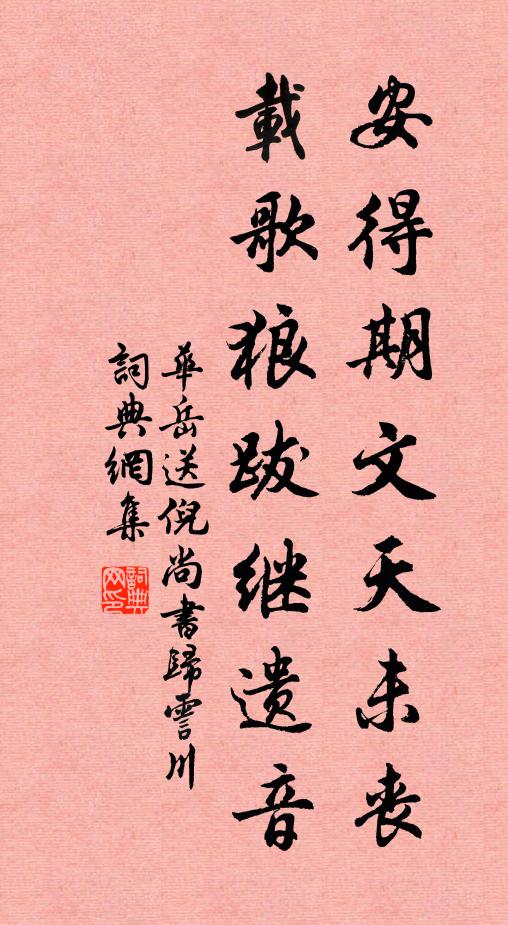 安得期文天未丧
載歌狼跋继遗音
华岳送倪尚書歸霅川
詞典網集
詞典网印